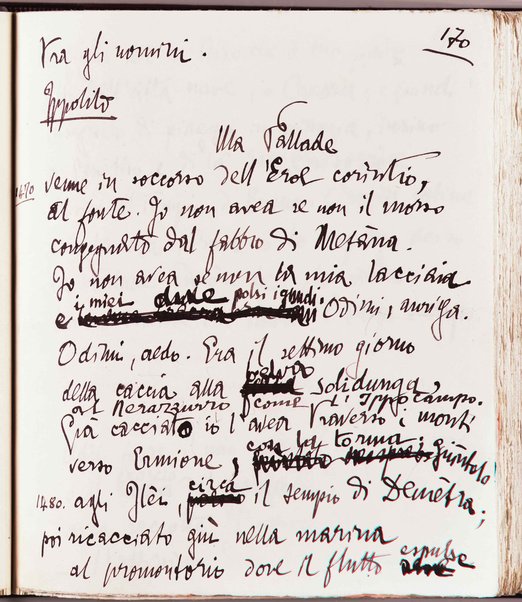 170
tra gli uomini.
Ippolito
Ma Pallade
1470 venne in soccorso dell'Eroe corintio,
al fonte. Io non avea se non il morso
congegnato dal fabbro di Metàna.
Io non avea se non la mia lacciaia
e i miei due polsi ignudi. Odimi, auriga.
Odimi, aedo. Era il settimo giorno
della caccia alla belva solidunga,
al Nerazzurro come l'Ippocampo.
Già cacciato io l'avea traverso i monti
verso Ermione, con la torma; giùntolo
1480. agli Ilèi, circa il tempio di Demètra;
poi ricacciato giù nella marina
al promontorio dove il flutto espulse